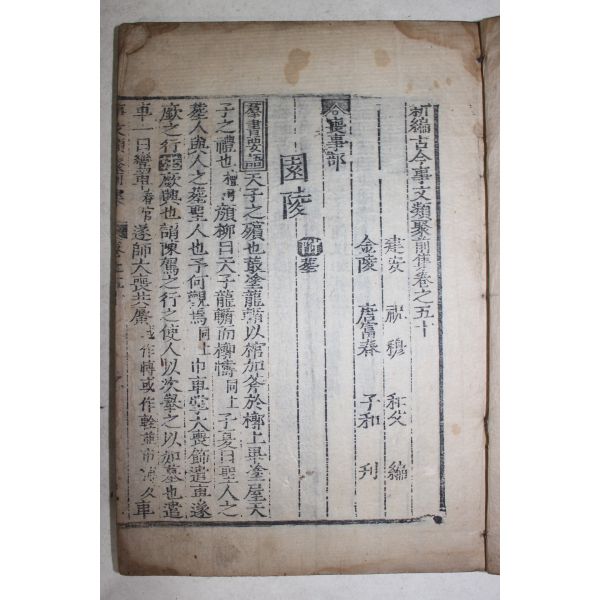 新編古今事文類聚前集卷之五十
建安 祝穆 和父 編
金陵 唐富春 子和 刊
喪事部
園陵 墓
羣書要語 天子之殯也菆塗龍輴以槨加斧於槨上畢塗屋天
子之禮也 檀弓 顏柳曰天子龍輴而槨幬 同上 子夏曰聖人之
葬人與人之葬聖人也子何觀焉 同上 巾車 大喪飾遣車遂
廞之行之 廞興也謂陳駕之行之使人以次舉之以如墓也遣
車一曰鸞車 春官 遂師大喪共 作轉或作輇